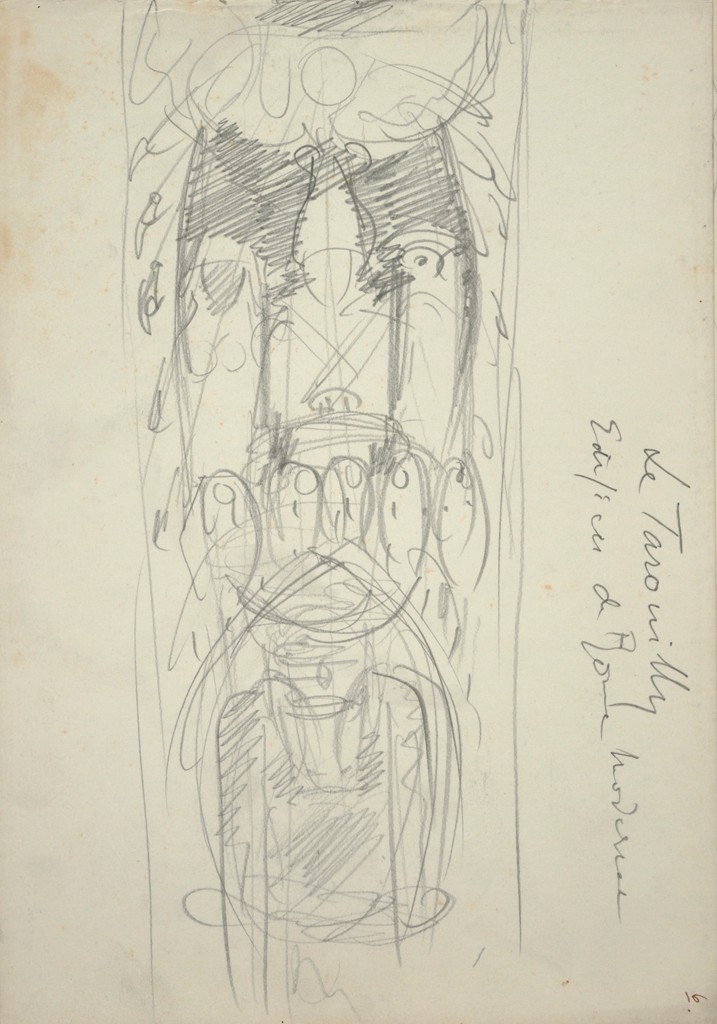 Le Tarouilly
Edifices de Rome moderne
16.